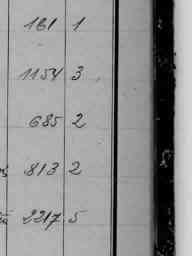 161 1
1154 3
685 2
813 2
2217 5